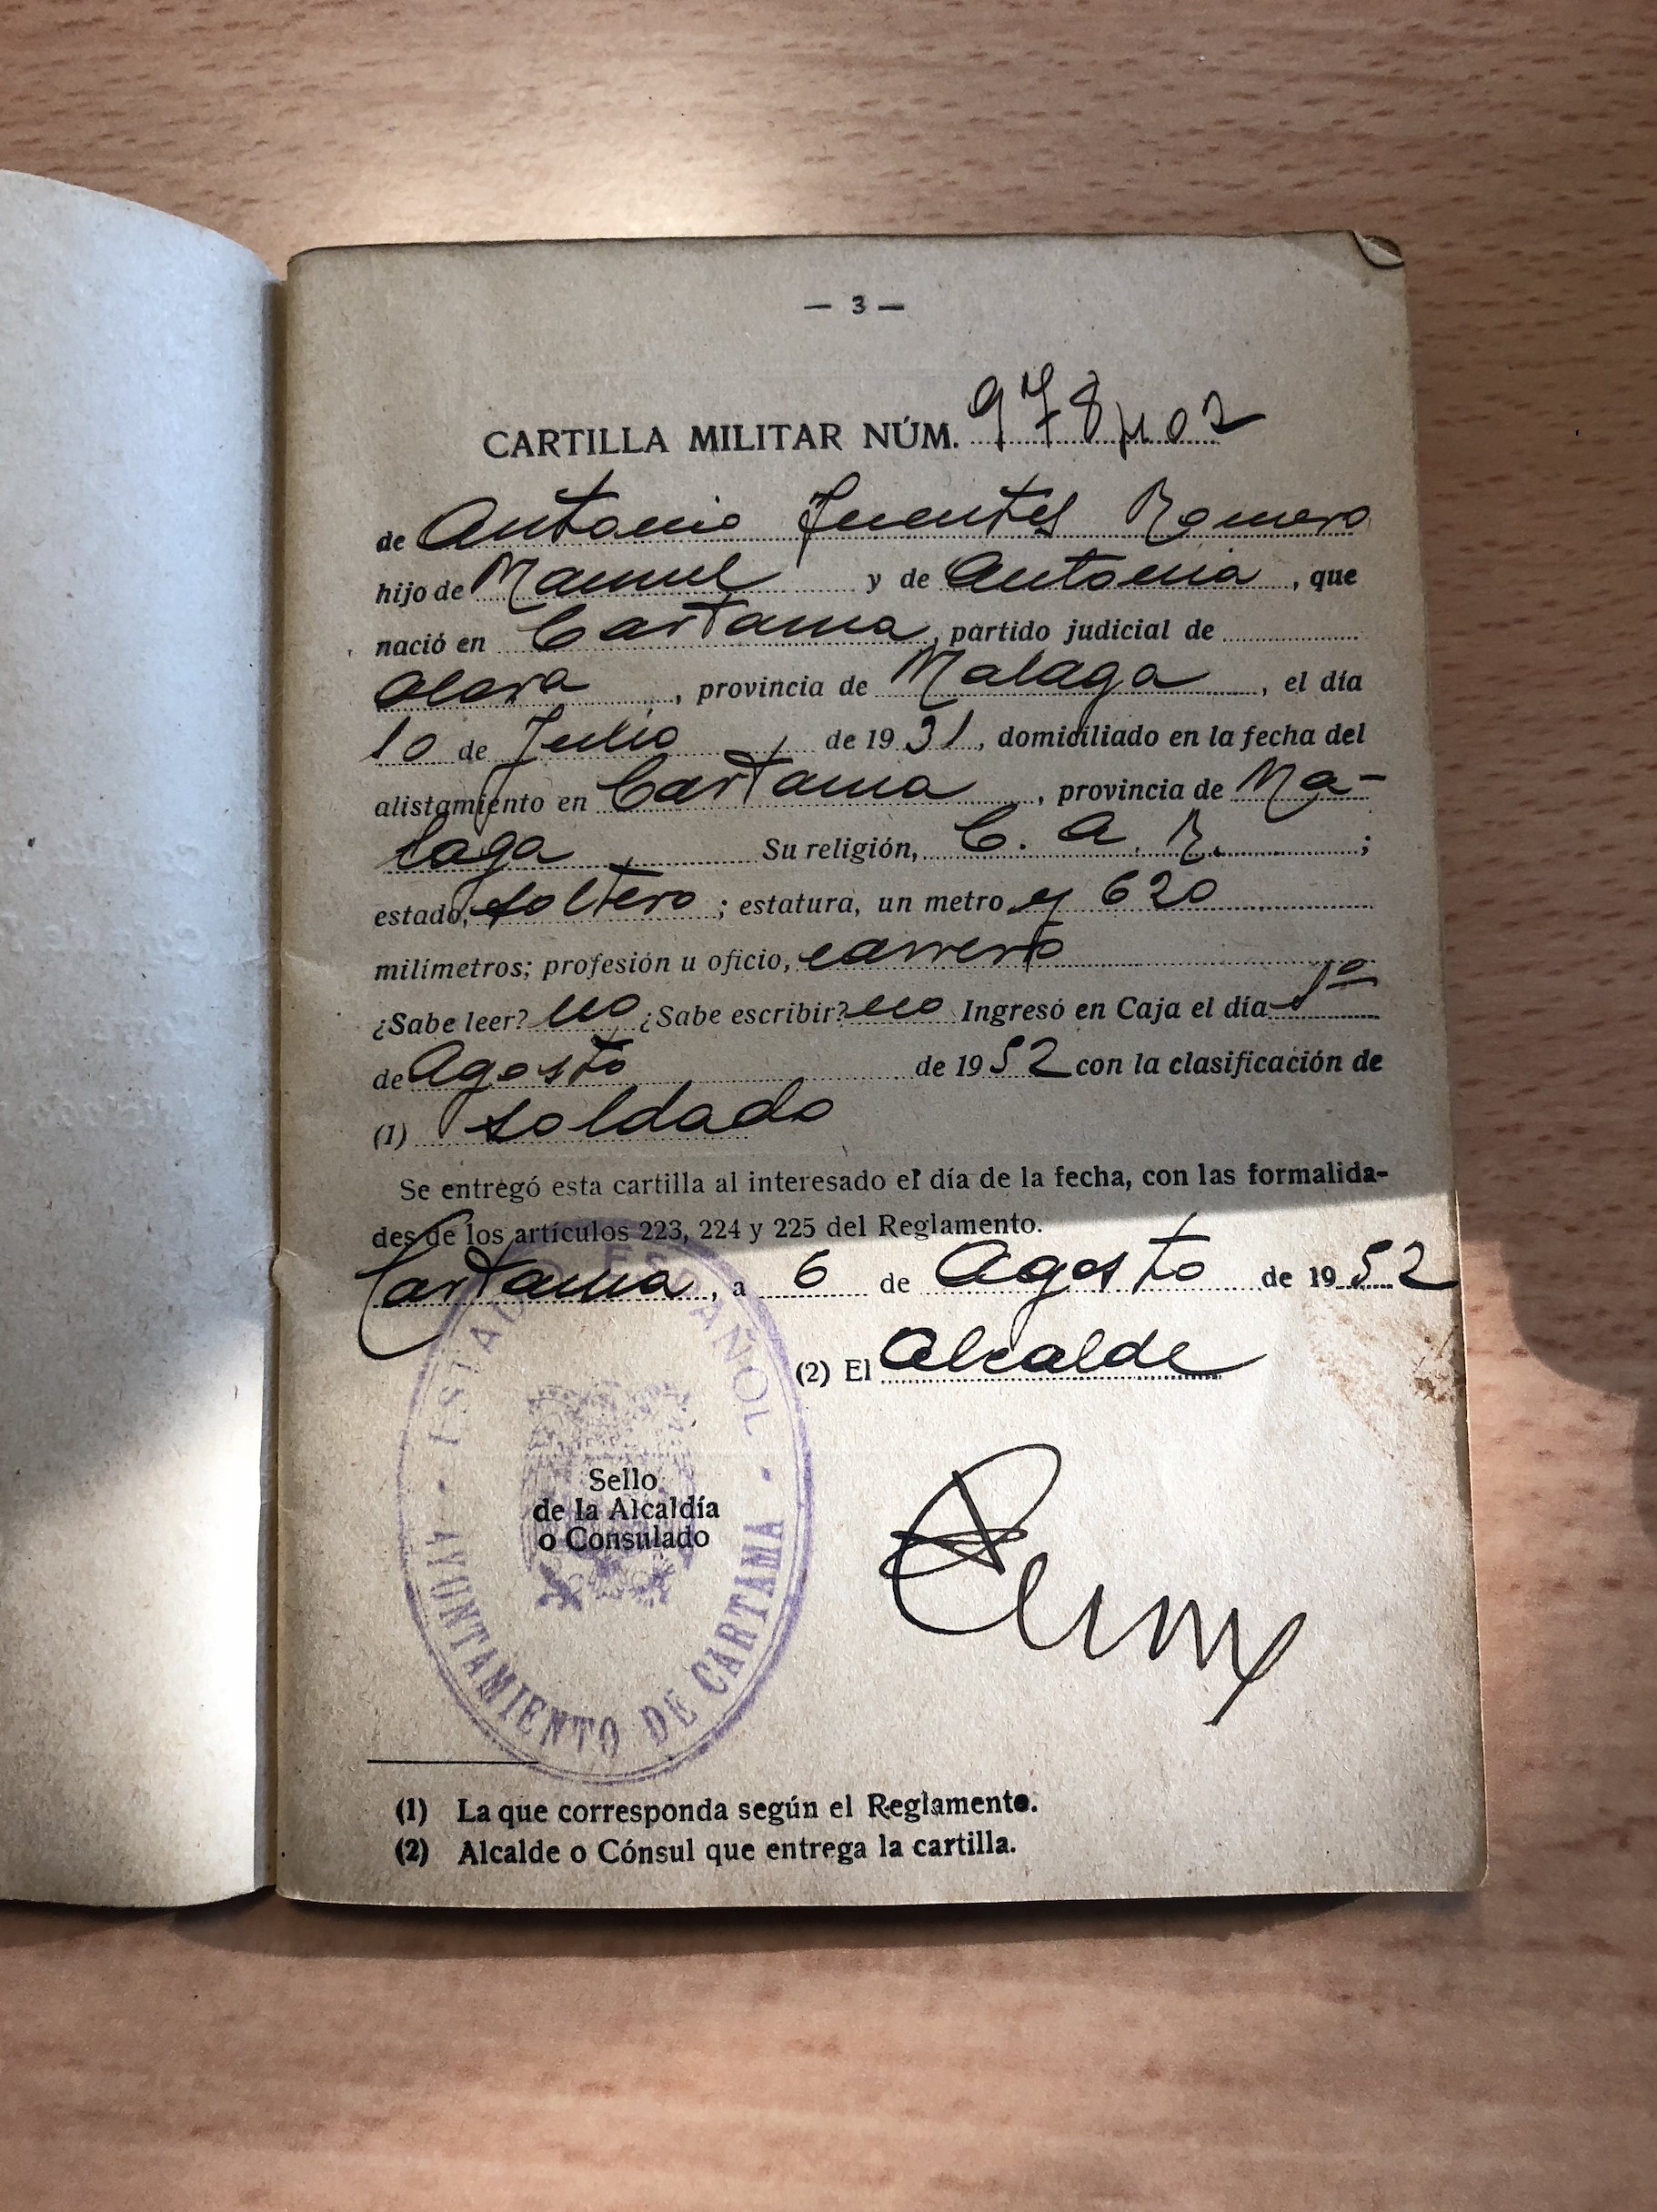 — 3 —
CARTILLA MILITAR NÚM.
de Antonio Fuentes Romero
hijo de Manuel y de Antonia, que
nació en Cartama, partido judicial de
Alora, provincia de Malaga, el día
10 de Julio de 1931, domiciliado en la fecha del
alistamiento en Cartama, provincia de Ma-
laga Su religión, C. A. R. ;
estado, soltero; estatura, un metro y 620
milímetros; profesión u oficio, carrero
¿Sabe leer? no ¿Sabe escribir? no Ingresó en Caja el día 1º
de Agosto de 1952 con la clasificación de
(1) soldado
Se entregó esta cartilla al interesado el día de la fecha, con las formalida-
des de los artículos 223, 224 y 225 del Reglamento.
Cartama, a 6 de Agosto de 1952
(2) El Alcalde
ESTADO ESPAÑOL
Sello
de la Alcaldía
o Consulado
AYUNTAMIENTO DE CARTAMA
(1) La que corresponda según el Reglamento.
(2) Alcalde o Cónsul que entrega la cartilla.